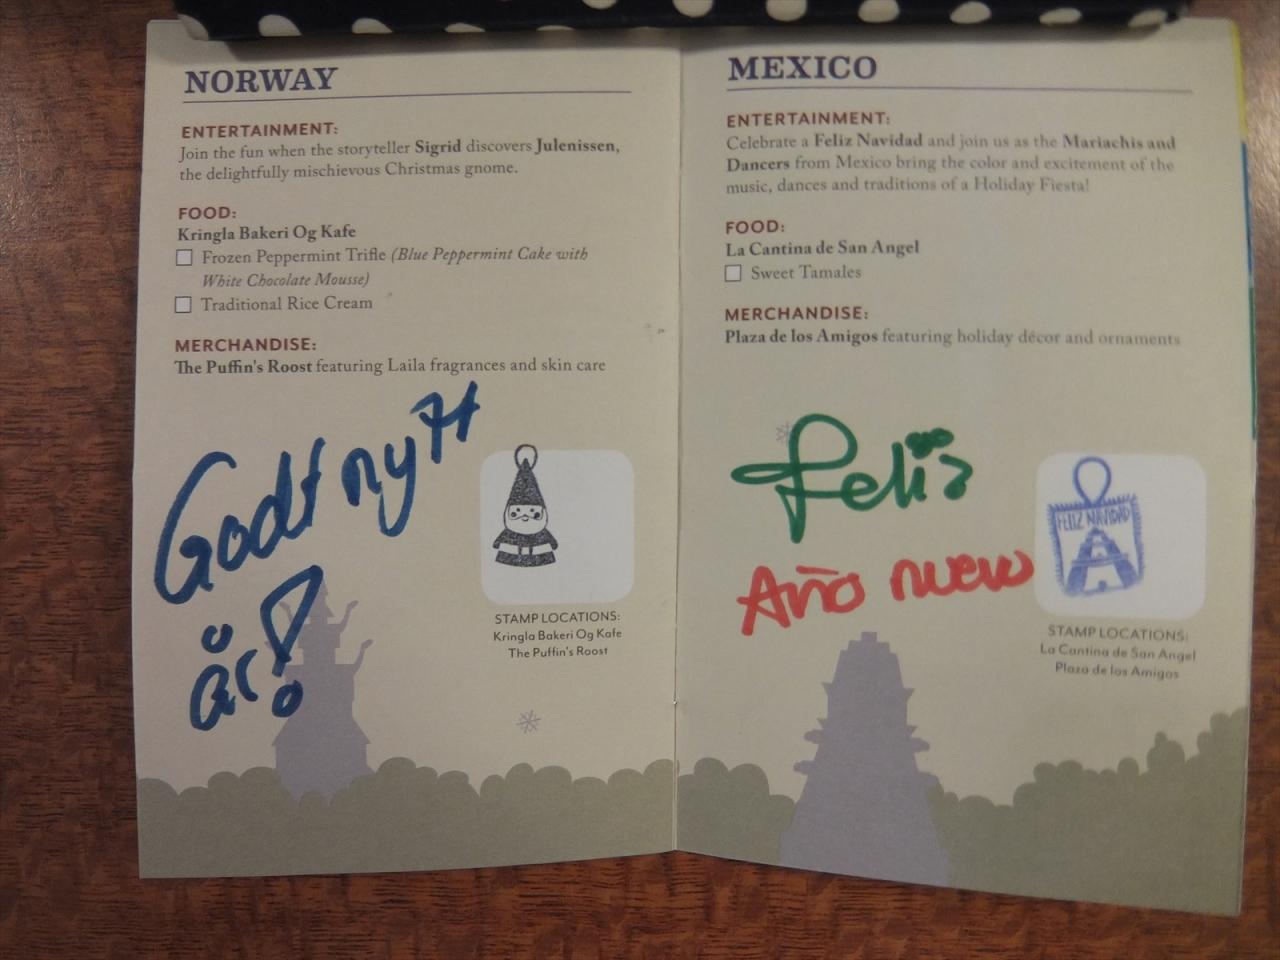 NORWAY
ENTERTAINMENT:
Join the fun when the storyteller Sigrid discovers Julenissen,
the delightfully mischievous Christmas gnome.
FOOD:
Kringla Bakeri Og Kafe
Frozen Peppermint Trifle (Blue Peppermint Cake with
White Chocolate Mousse)
Traditional Rice Cream
MERCHANDISE:
The Puffin's Roost featuring Laila fragrances and skin care
Godt nytt
år!
STAMP LOCATIONS:
Kringla Bakeri Og Kafe
The Puffin's Roost
MEXICO
ENTERTAINMENT:
Celebrate a Feliz Navidad and join us as the Mariachis and
Dancers from Mexico bring the color and excitement of the
music, dances and traditions of a Holiday Fiesta!
FOOD:
La Cantina de San Angel
Sweet Tamales
MERCHANDISE:
Plaza de los Amigos featuring holiday décor and ornaments
Feliz
Año nuevo
FELIZ NAVIDAD
STAMP LOCATIONS:
La Cantina de San Angel
Plaza de los Amigos